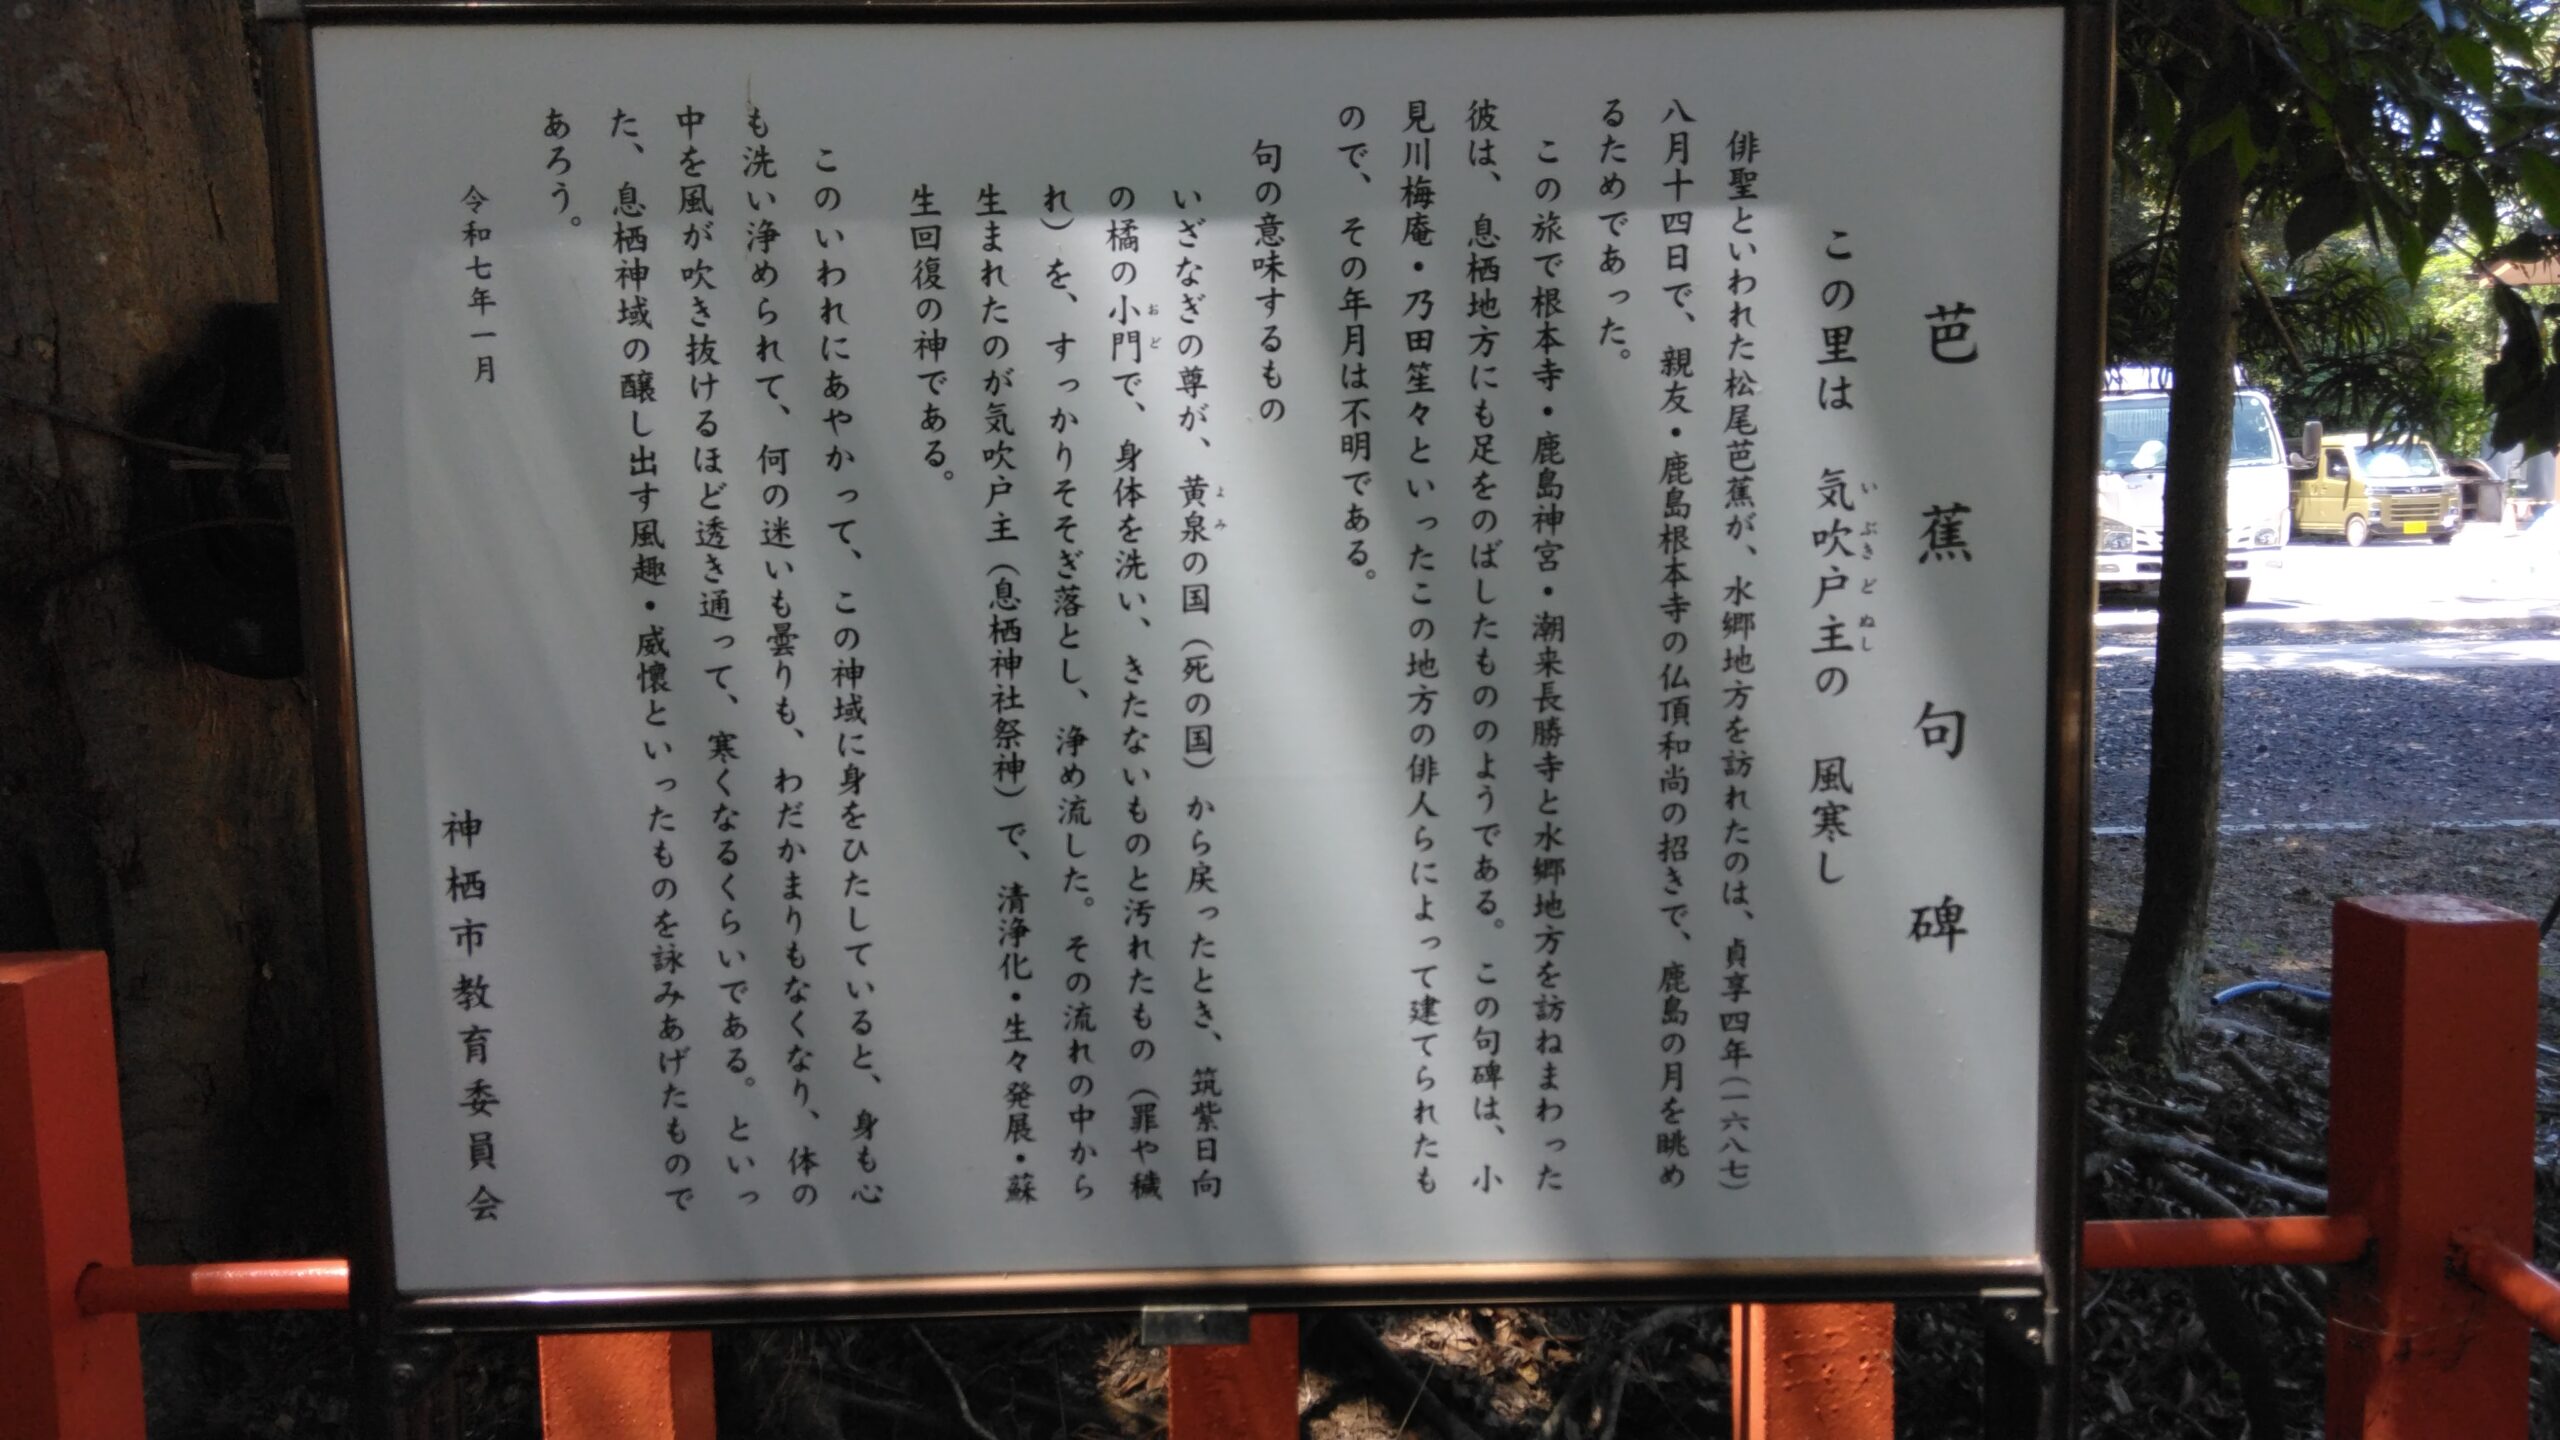 芭蕉句碑
この里は　気吹戸主の　風寒し
いぶきどぬし
俳聖といわれた松尾芭蕉が、水郷地方を訪れたのは、貞享四年（一六八七）
八月十四日で、親友・鹿島根本寺の仏頂和尚の招きで、鹿島の月を眺め
るためであった。
この旅で根本寺・鹿島神宮・潮来長勝寺と水郷地方を訪ねまわった
彼は、息栖地方にも足をのばしたもののようである。この句碑は、小
見川梅庵・乃田笙々といったこの地方の俳人らによって建てられたも
ので、その年月は不明である。
句の意味するもの
いざなぎの尊が、黄泉の国（死の国）から戻ったとき、筑紫日向
よみ
の橘の小門で、身体を洗い、きたないものと汚れたもの（罪や穢
おど
れ）を、すっかりそそぎ落とし、浄め流した。その流れの中から
生まれたのが気吹戸主（息栖神社祭神）で、清浄化・生々発展・蘇
生回復の神である。
このいわれにあやかって、この神域に身をひたしていると、身も心
も洗い浄められて、何の迷いも曇りも、わだかまりもなくなり、体の
中を風が吹き抜けるほど透き通って、寒くなるくらいである。といっ
た、息栖神域の醸し出す風趣・威懐といったものを詠みあげたもので
あろう。
令和七年一月
神栖市教育委員会